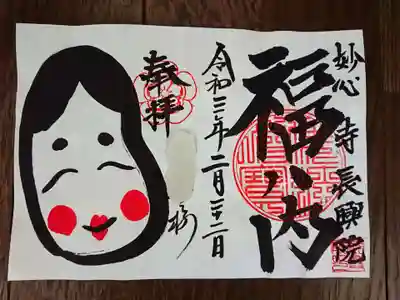 妙心寺長興院
福ハ内
令和三年二月二十二日
奉拝